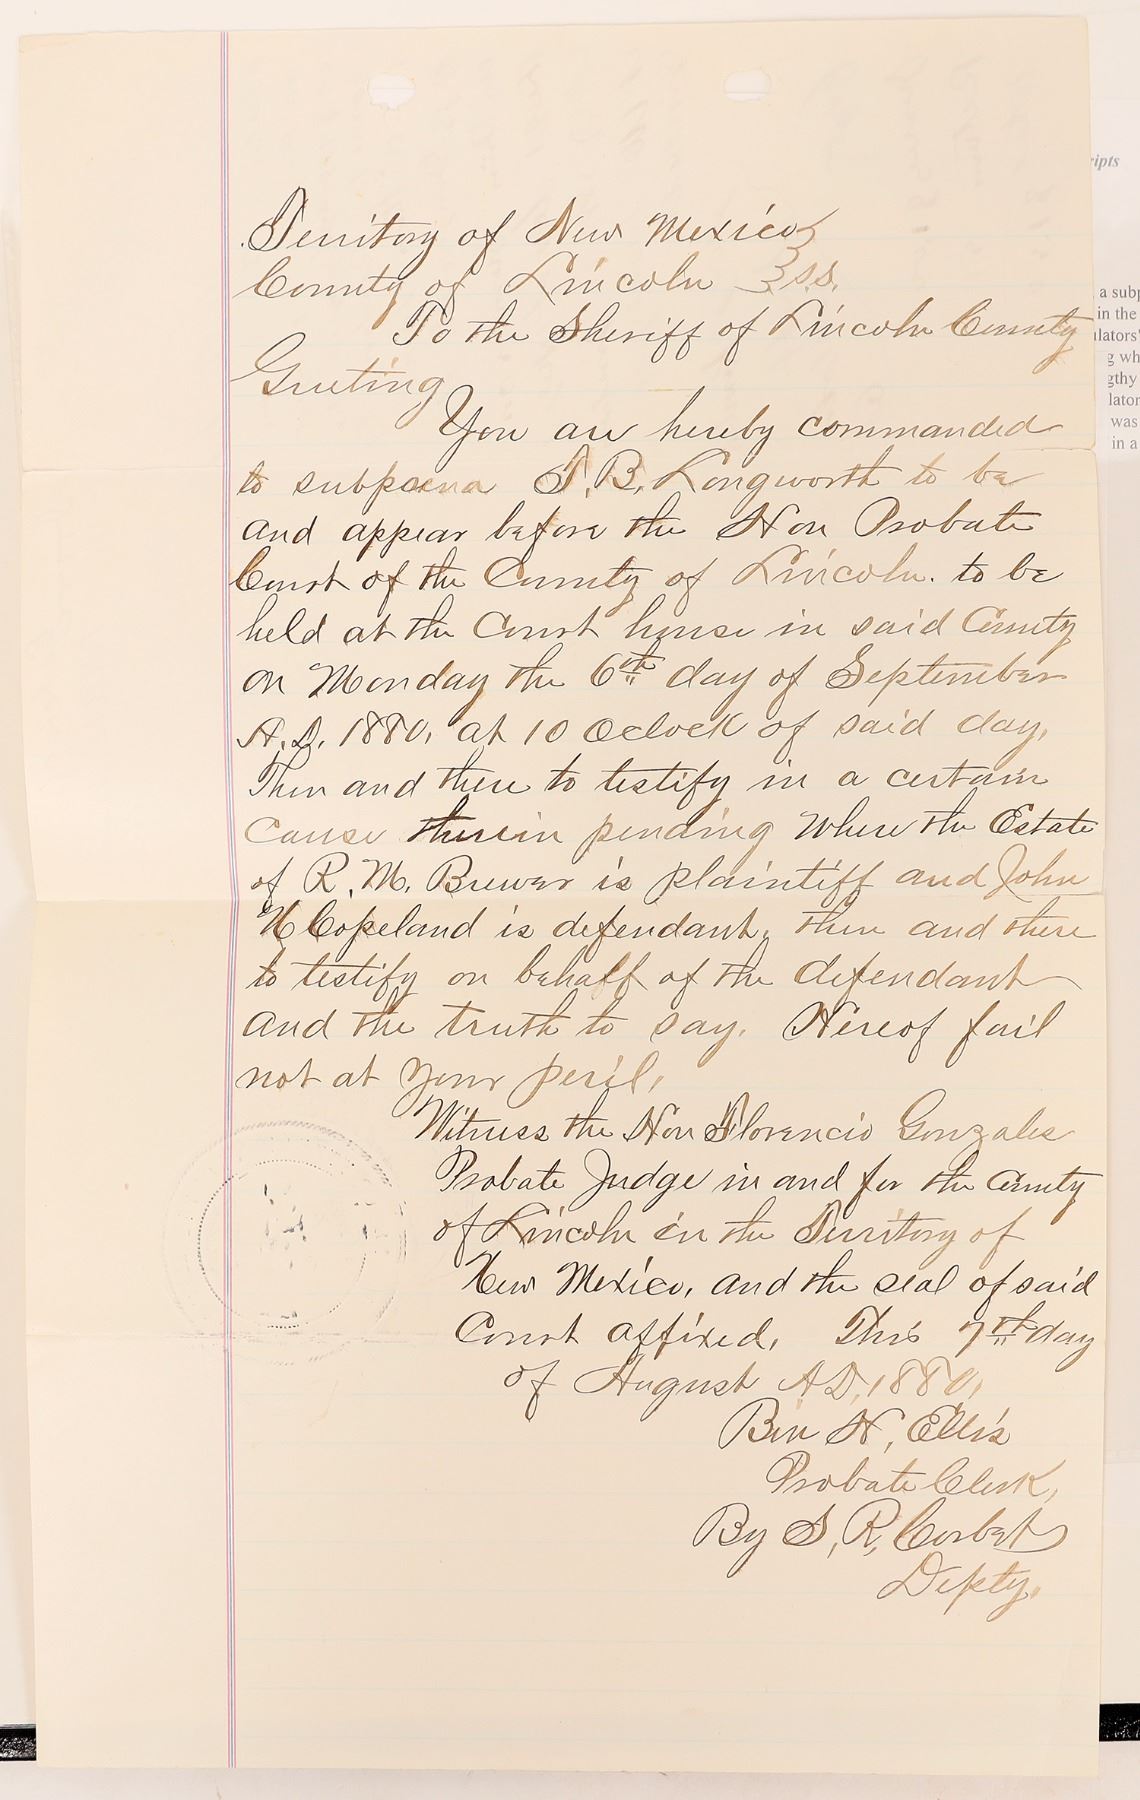 Territory of New Mexico }
County of Lincoln } s.s.
To the Sheriff of Lincoln County
Greeting
You are hereby commanded
to subpoena T. B. Longworth to be
and appear before the Hon Probate
Court of the County of Lincoln. to be
held at the Court house in said County
on Monday the 6th day of September
A.D. 1880, at 10 Oclock of said day,
Then and there to testify in a certain
cause therein pending Where the Estate
of R. M. Brewer is plaintiff and John
N Copeland is defendant, then and there
to testify on behalf of the defendant
and the truth to say. Hereof fail
not at your peril,
Witness the Hon Florencio Gonzales
Probate Judge in and for the County
of Lincoln in the Territory of
New Mexico, and the seal of said
Court affixed, This 7th day
of August A.D. 1880,
Ben H, Ellis
Probate Clerk,
By S, R, Corbet
Depty.
ripts
a subp
in the
lators'
g wh
gthy
lator
was
in a